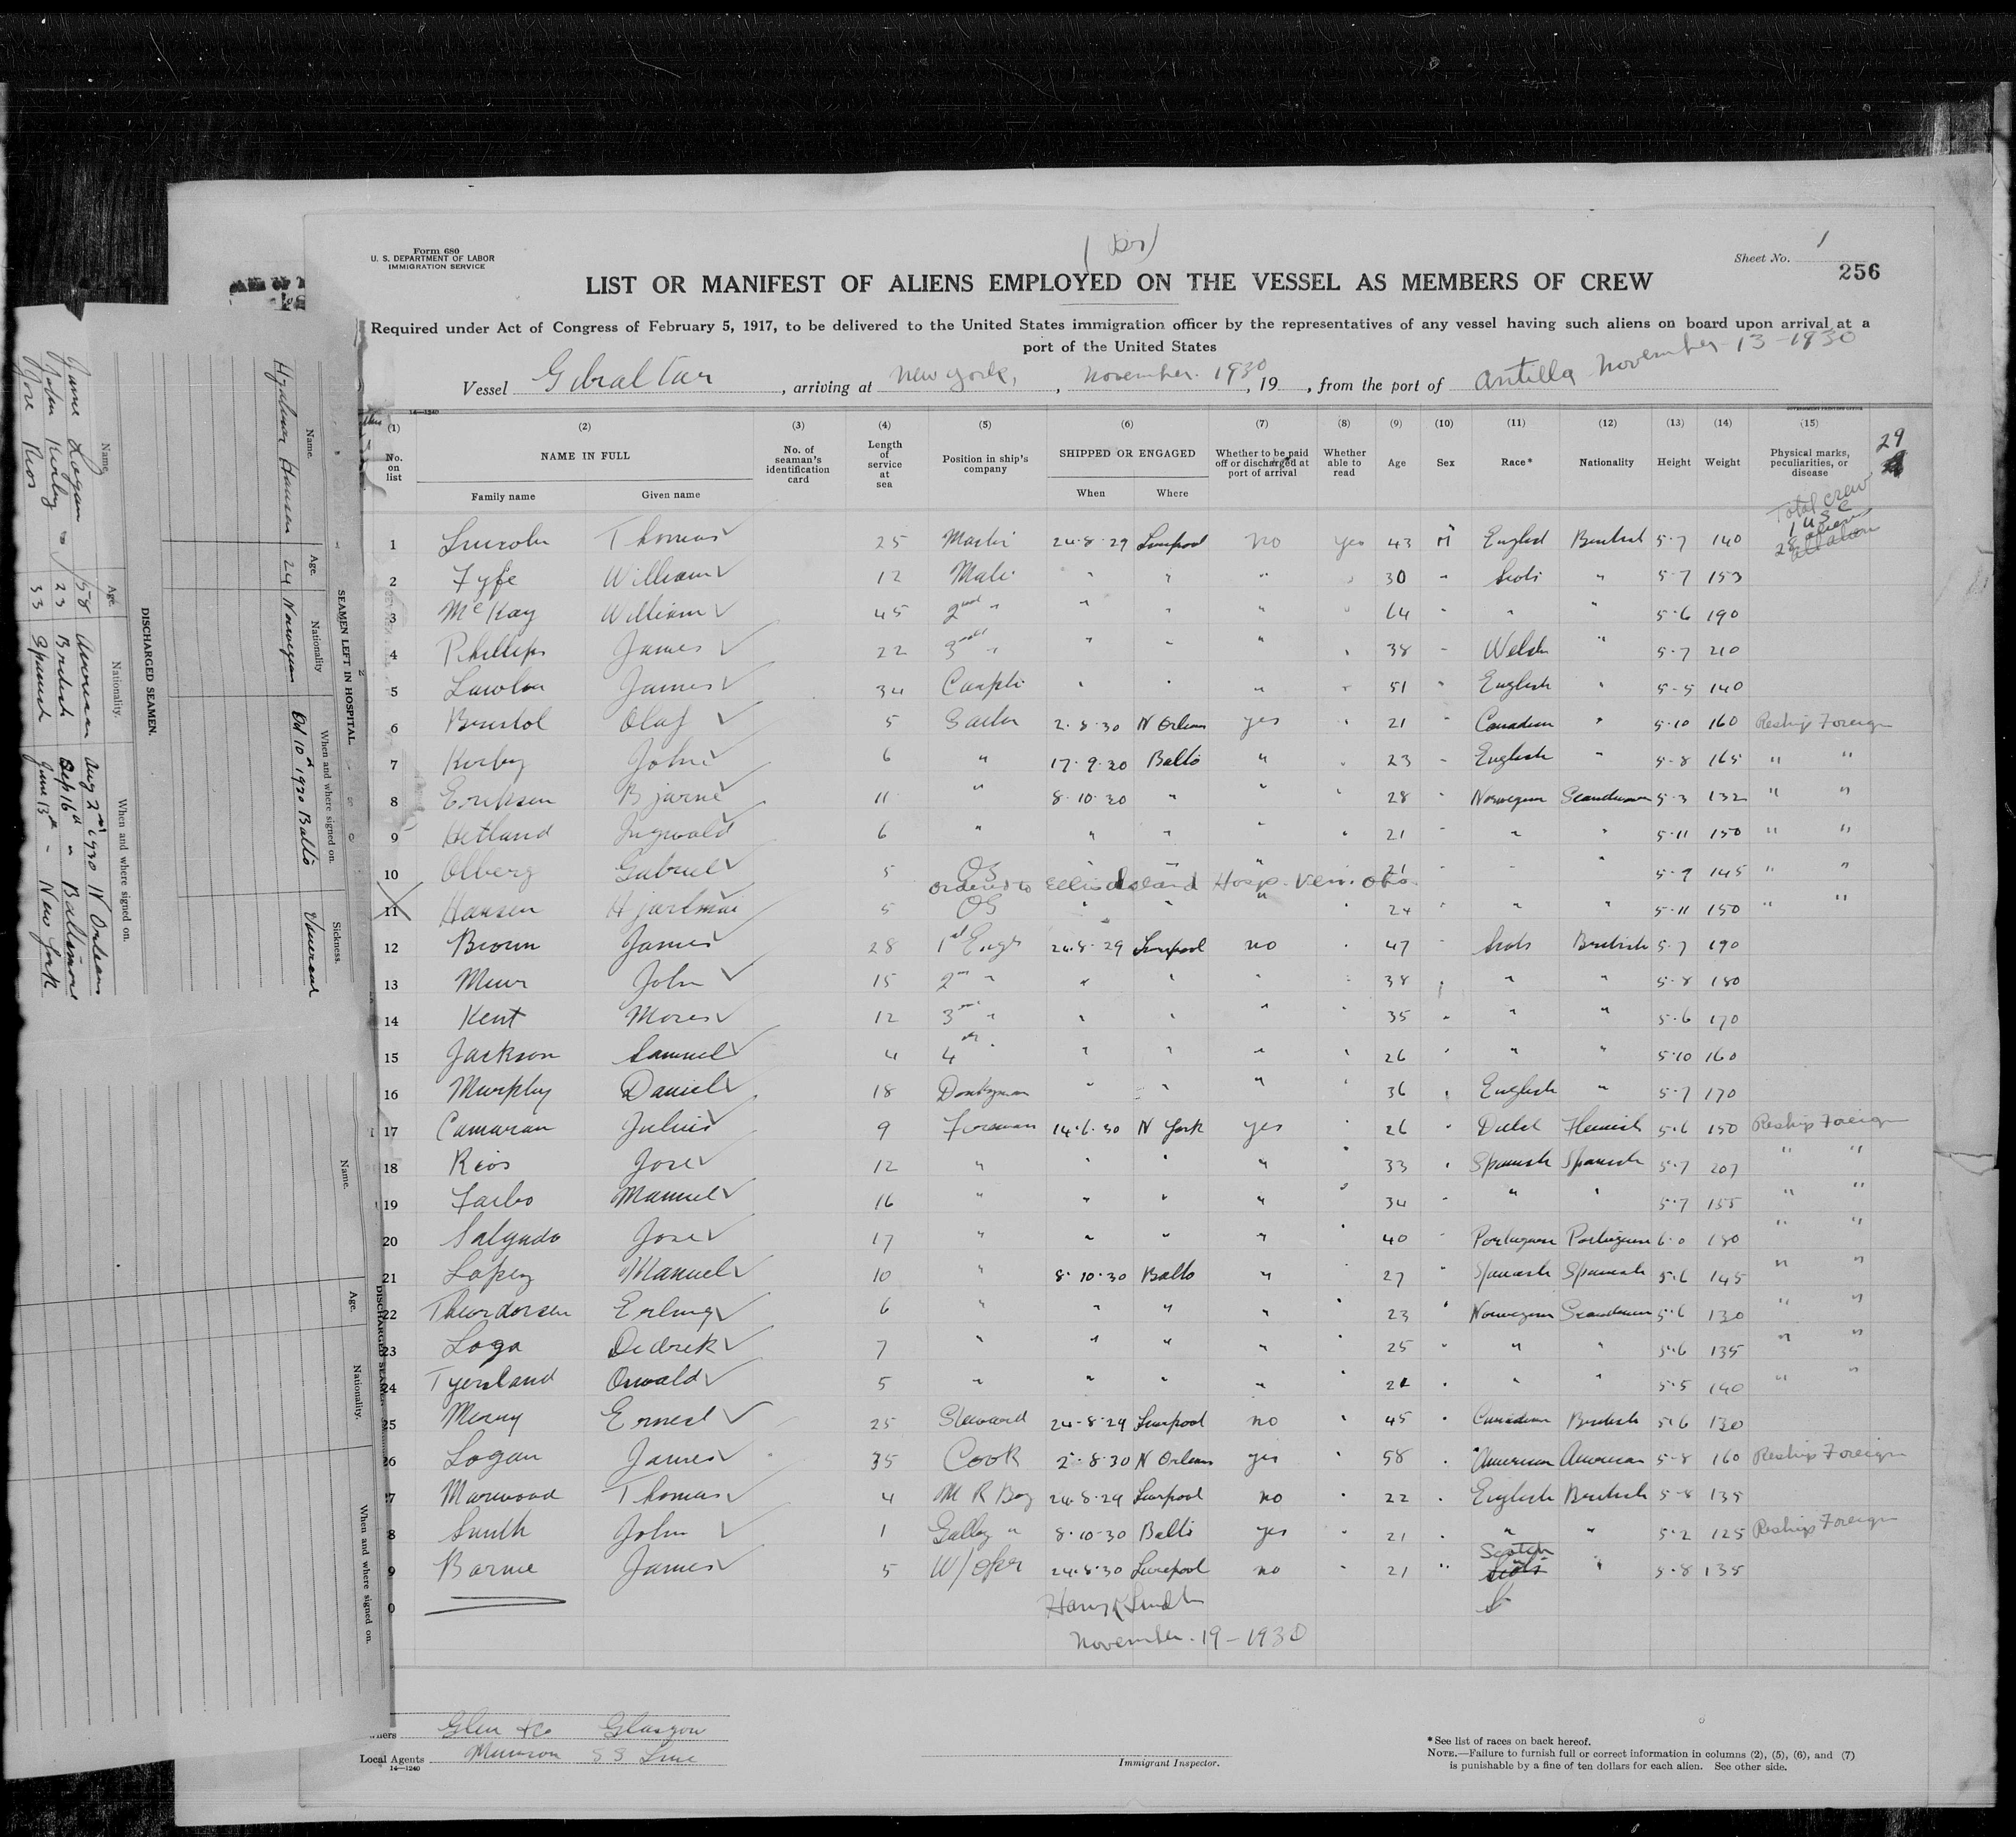 Form 680
U. S. DEPARTMENT OF LABOR
IMMIGRATION SERVICE
(Br)
Sheet No. 1
256
LIST OR MANIFEST OF ALIENS EMPLOYED ON THE VESSEL AS MEMBERS OF CREW
Required under Act of Congress of February 5, 1917, to be delivered to the United States immigration officer by the representatives of any vessel having such aliens on board upon arrival at a
port of the United States
Vessel Gibraltar , arriving at New York, , November. 1930 , 19 , from the port of Antilla November 13-1930
14—1240
(1) (2) (3) (4) (5) (6) (7) (8) (9) (10) (11) (12) (13) (14) (15)
No. on list NAME IN FULL Family name Given name No. of seaman's identification card Length of service at sea Position in ship's company SHIPPED OR ENGAGED When Where Whether to be paid off or discharged at port of arrival Whether able to read Age Sex Race* Nationality Height Weight Physical marks, peculiarities, or disease
29
Total crew
1 USC
28 aliens
1 Lincoln Thomas 25 Master 24·8·29 Liverpool no yes 43 M English British 5·7 140
2 Fyfe William 12 Mate " " " " 30 " Scots " 5·7 153
3 McKay William 45 2nd " " " " " 64 " " " 5·6 190
4 Phillips James 22 3rd " " " " " 38 " Welsh " 5·7 210
5 Lawlor James 34 Carptr " " " " 51 " English " 5·5 140
6 Bristol Olaf 5 Sailor 2·8·30 N Orleans yes " 21 " Canadian " 5·10 160 Reship Foreign
7 Kirby John 6 " 17·9·30 Balto " " 23 " English " 5·8 165 " "
8 Eriksen Bjarne 11 " 8·10·30 " " " 28 " Norwegian Scandinavian 5·3 132 " "
9 Hetland Ingwald 6 " " " " " 21 " " " 5·11 150 " "
10 Olberg Gabriel 5 OS " " " 21 " " " 5·7 145 " "
ordered to Ellis Island Hosp. Ven. obs.
11 Hansen Hjarlmar 5 OS " " " 24 " " " 5·11 150 " "
12 Brown James 28 1st Engr 24·8·29 Liverpool no " 47 " Scots British 5·7 190
13 Muir John 15 2nd " " " " " 38 " " " 5·8 180
14 Kent Moses 12 3rd " " " " 35 " " " 5·6 170
15 Jackson Samuel 4 4th " " " " " 26 " " " 5·10 160
16 Murphy Daniel 18 Donkyman " " " " 36 " English " 5·7 170
17 Camaran Julius 9 Fireman 14·6·30 N York yes " 26 " Dutch Flemish 5·6 150 Reship Foreign
18 Rios Jose 12 " " " " " 33 " Spanish Spanish 5·7 207 " "
19 Farbo Manuel 16 " " " " " 34 " " " 5·7 155 " "
20 Salgado Jose 17 " " " " " 40 " Portuguese Portuguese 6·0 180 " "
21 Lopez Manuel 10 " 8·10·30 Balto " " 27 " Spanish Spanish 5·6 145 " "
22 Theordorsen Erling 6 " " " " " 23 " Norwegian Scandinavian 5·6 130 " "
23 Loga Dedrek 7 " " " " " 25 " " " 5·6 135 " "
24 Tyersland Oswald 5 " " " " " 21 " " " 5·5 140 " "
25 Ernest 25 Steward 24·8·29 Liverpool no " 45 " Canadian British 5·6 130
26 Logan James 35 Cook 2·8·30 N Orleans yes " 58 " American American 5·8 160 Reship Foreign
7 Marwood Thomas 4 M R Boy 24·8·29 Liverpool no " 22 " English British 5·8 135
8 Smith John 1 Galley " 8·10·30 Balto yes " 21 " " " 5·2 125 Reship Foreign
9 Barnie James 5 W/Oper 24·8·30 Liverpool no " 21 " Scotch Scots " 5·8 135
0
Harry R Smith
November. 19-1930
Glen & Co Glasgow
Local Agents Munson SS Line
14—1240
Immigrant Inspector.
*See list of races on back hereof.
NOTE.—Failure to furnish full or correct information in columns (2), (5), (6), and (7)
is punishable by a fine of ten dollars for each alien. See other side.
SEAMEN LEFT IN HOSPITAL
Name. Age. Nationality When and where signed on. Sickness.
Hjalmar Hansen 24 Norwegian Oct 10th 1930 Balto Venereal
DISCHARGED SEAMEN.
Name. Age. Nationality. When and where signed on.
James Logan 58 American Aug 2nd 1930 N Orleans
John Kirby 23 British Sep 16th " Baltimore
Jose Rios 33 Spanish June 13th " New York
DISCHARGED SEAMEN
Name. Age. Nationality. When and where signed on.